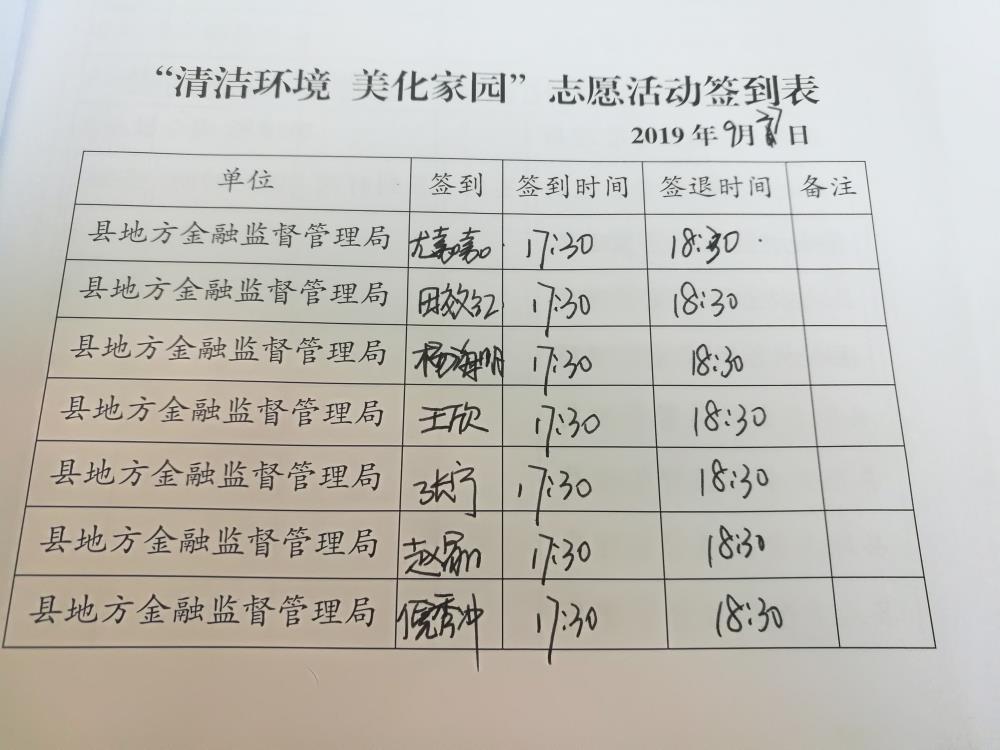 “清洁环境 美化家园”志愿活动签到表
2019年9月27日
单位 签到 签到时间 签退时间 备注
县地方金融监督管理局 尤嘉嘉 17:30 18:30
县地方金融监督管理局 田效红 17:30 18:30
县地方金融监督管理局 杨海明 17:30 18:30
县地方金融监督管理局 王欣 17:30 18:30
县地方金融监督管理局 张宁 17:30 18:30
县地方金融监督管理局 赵 17:30 18:30
县地方金融监督管理局 倪秀冲 17:30 18:30